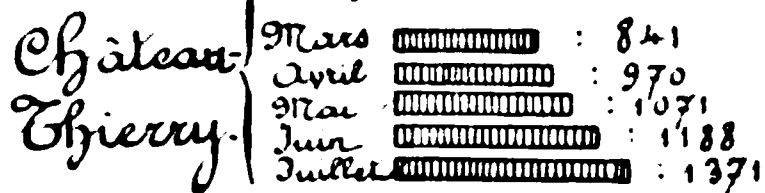 Château-Thierry.
Mars : 841
Avril : 970
Mai : 1071
Juin : 1188
Juillet : 1371